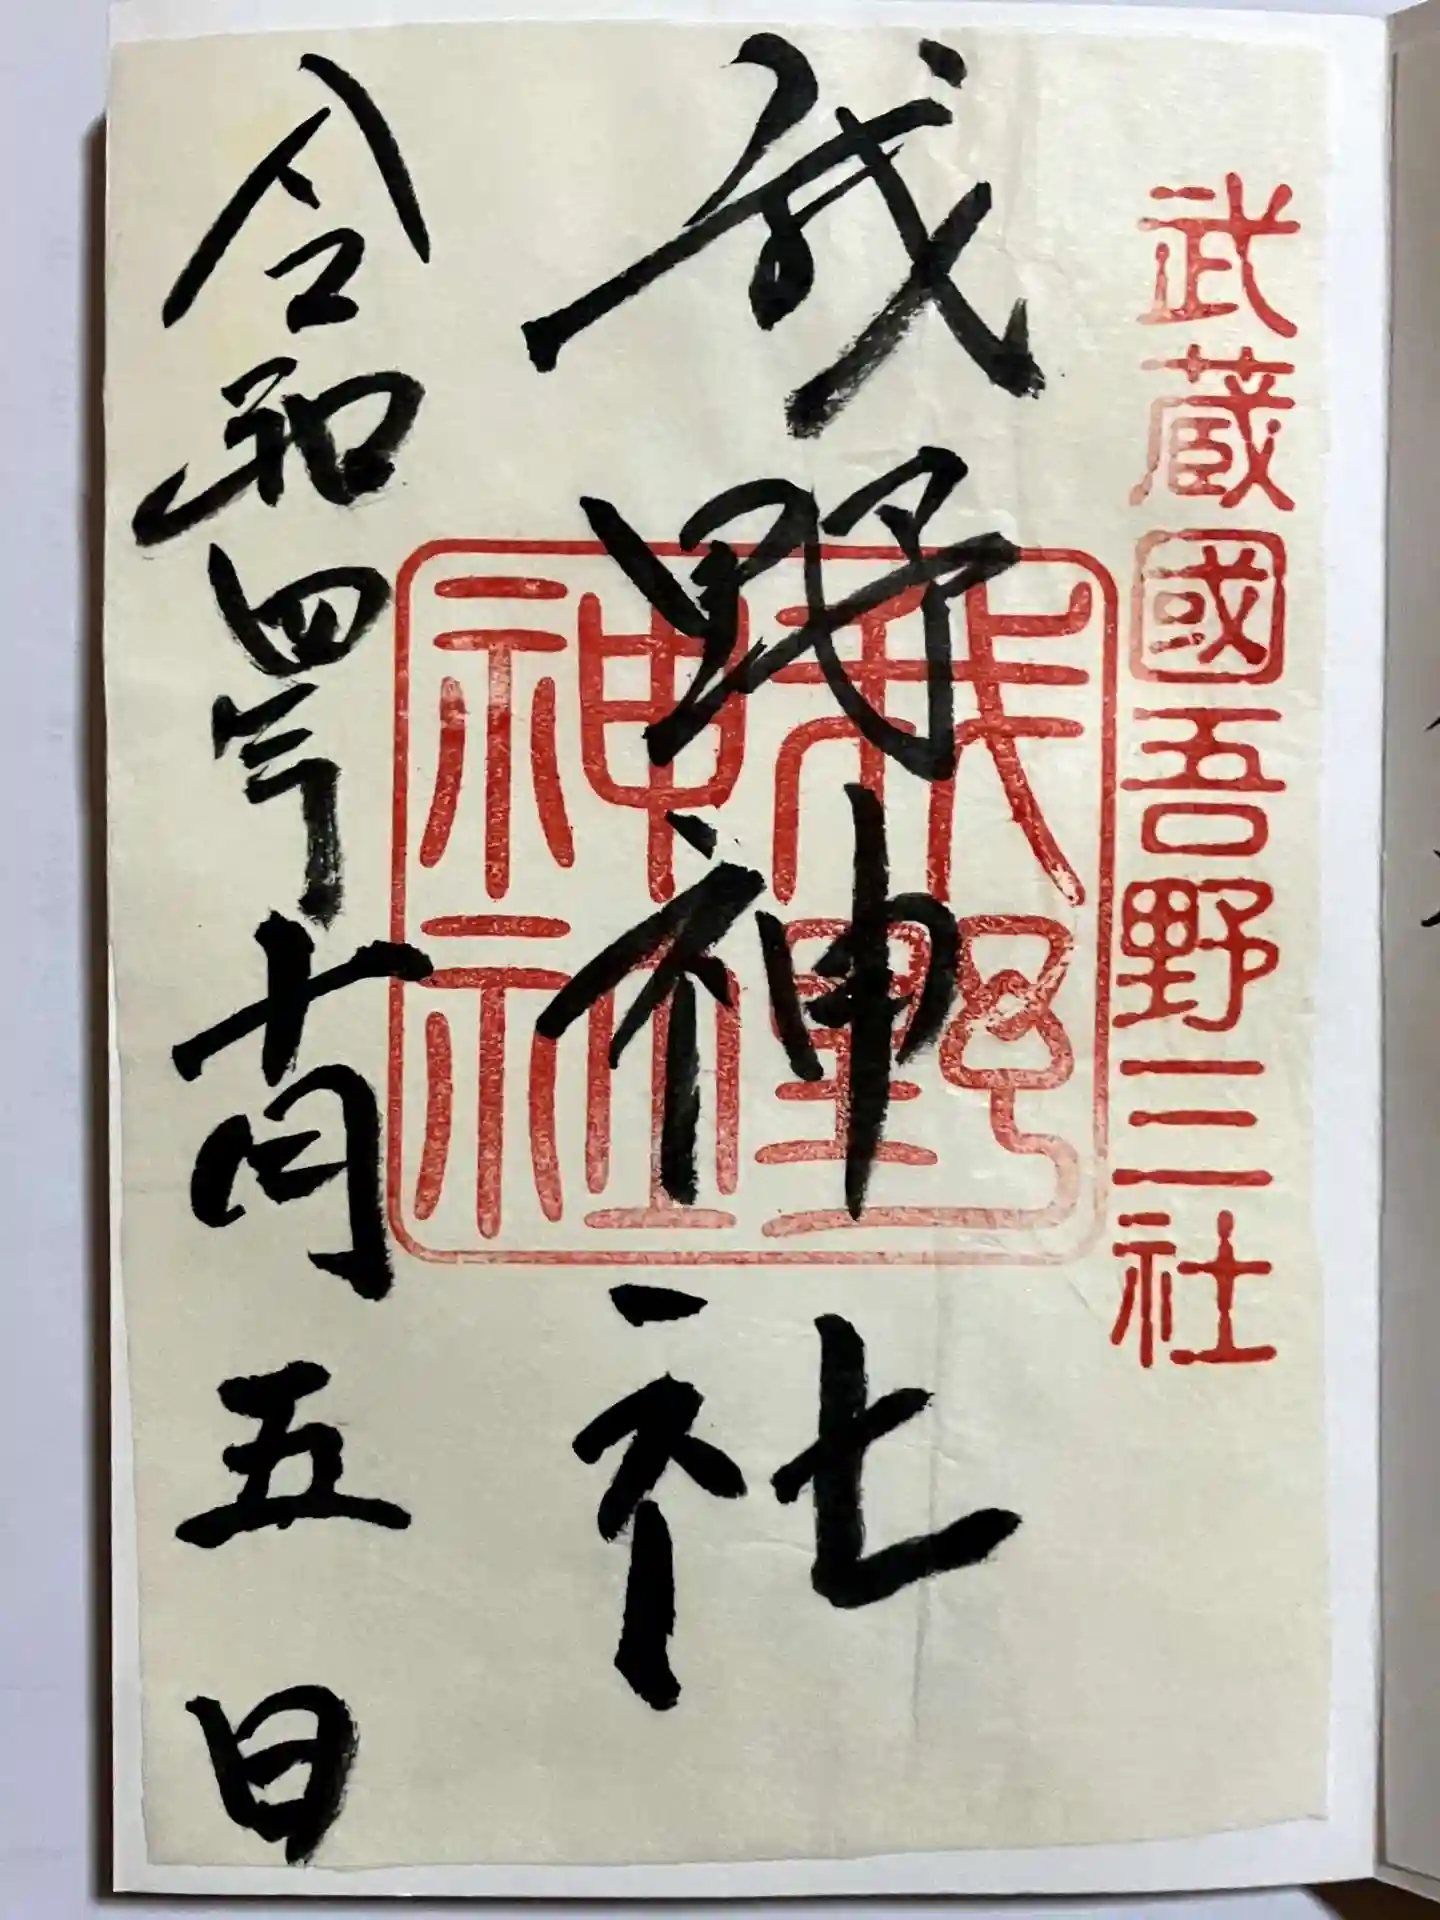 武蔵國吾野三社
我野神社
我野神社
令和四年十一月五日